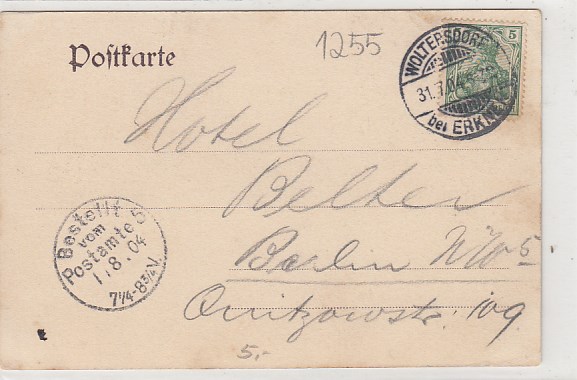 Postkarte
1255
5
WOLTERSDORF
31.7.
bei ERKNE
Hotel
Belter
Berlin NW 5
Quitzowstr. 109
Bestellt
vom
Postamte 5
1.8.04
7¼-8¾V.
5,-